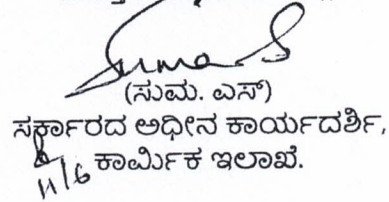 Suma S
(ಸುಮ. ಎಸ್)
ಸರ್ಕಾರದ ಅಧೀನ ಕಾರ್ಯದರ್ಶಿ,
ಕಾರ್ಮಿಕ ಇಲಾಖೆ.
11/6